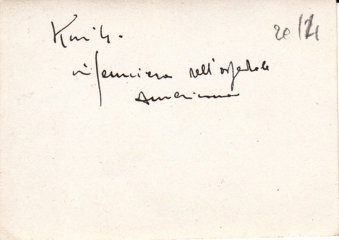 20/21
infermiera nell'ospedale
Americano